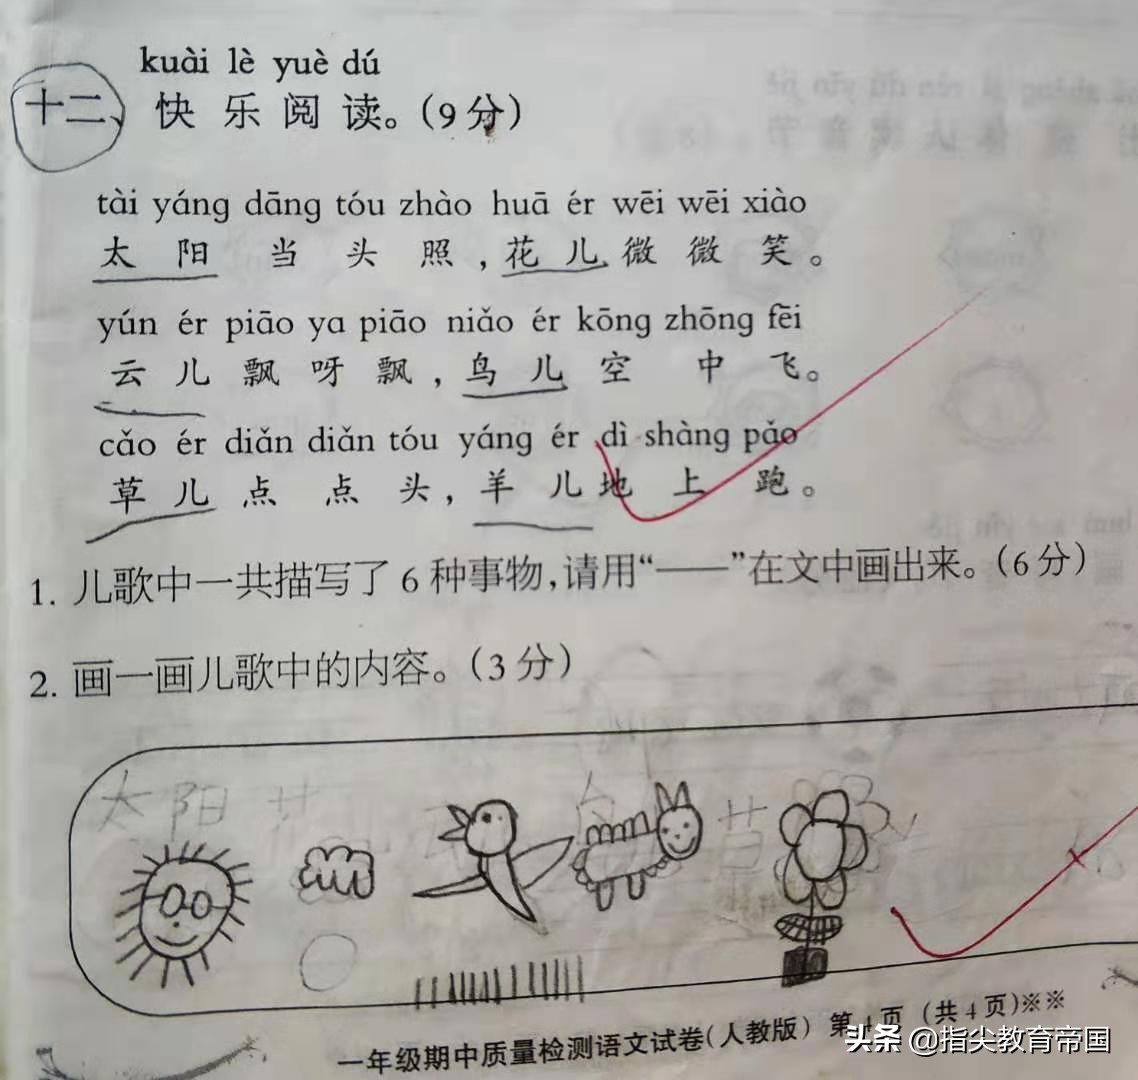 kuài lè yuè dú
十二、快乐阅读。(9分)
tài yáng dāng tóu zhào huā ér wēi wēi xiào
太阳当头照,花儿微微笑。
yún ér piāo ya piāo niǎo ér kōng zhōng fēi
云儿飘呀飘,鸟儿空中飞。
cǎo ér diǎn diǎn tóu yáng ér dì shàng pǎo
草儿点点头,羊儿地上跑。
1. 儿歌中一共描写了6种事物,请用“——”在文中画出来。(6分)
2. 画一画儿歌中的内容。(3分)
太阳 花
一年级期中质量检测语文试卷(人教版) 第4页 (共4页)※※
头条 @指尖教育帝国